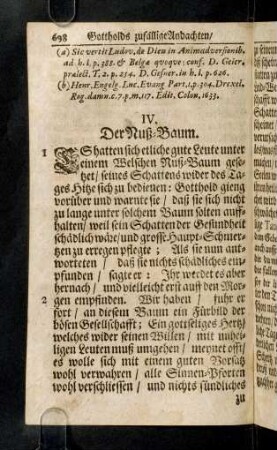 698 Gottholds zufällige Andachten/
(a) Sic vertit Ludov. de Dieu in Animadversionib.
ad h. l. p. 388. & Belgæ quoque, conf. D. Geier,
prælect. T. 2. p. 254. D. Gesner. in h. l. p. 626.
(b) Henr. Engelg. Luc. Evang. Part. 1. p. 304. Drexel.
Rog. damn. c. 7. p. m. 117. Edit. Colon. 1633.
IV.
Der Nuß-Baum.
1 ES hatten sich etliche gute Leute unter
einem Welschen Nuß-Baum gese-
tzet/ seines Schattens wider des Ta-
ges Hitze sich zu bedienen: Gotthold gieng
vorüber und warnte sie/ daß sie sich nicht
zu lange unter solchem Baum solten auff-
halten/ weil sein Schatten der Gesundheit
schädlich wäre/ und grosse Haupt-Schmer-
tzen zu erregen pflegte; Als sie nun ant-
worteten/ daß sie nichts schädliches em-
pfunden/ sagte er: Ihr werdet es aber
hernach/ und vielleicht erst auff den Mor-
2 gen empfinden. Wir haben/ fuhr er
fort/ an diesem Baum ein Fürbild der
bösen Gesellschafft; Ein gottseliges Hertz/
welches wider seinen Willen/ mit unhei-
ligen Leuten muß umgehen/ meynet offt/
es wolle sich mit einem guten Vorsatz
wohl verwahren/ alle Sinnen-Pforten
wohl verschliessen/ und nichts sündliches
zu